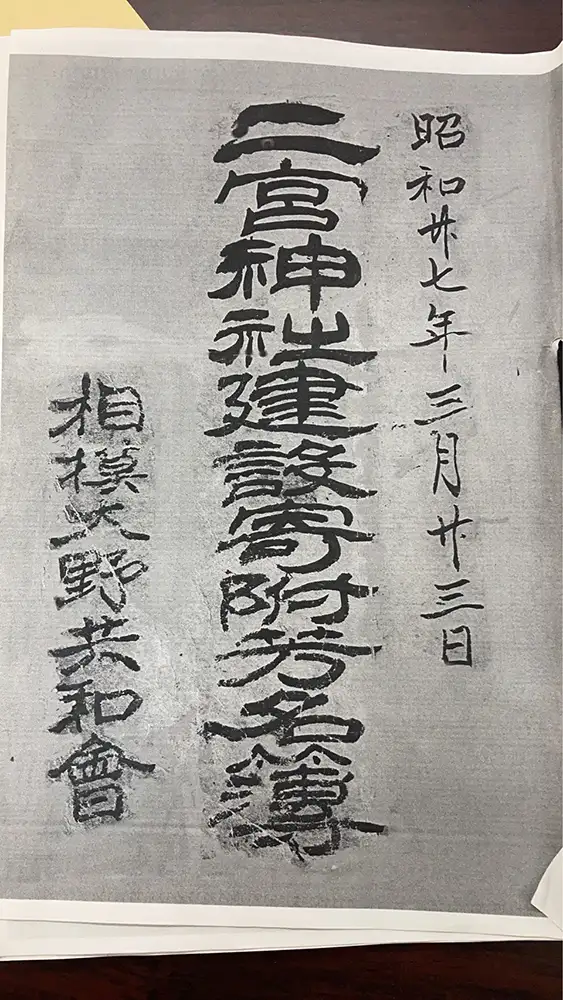 昭和廿七年三月廿三日
二宮神社建設寄附芳名簿
相模大野共和會